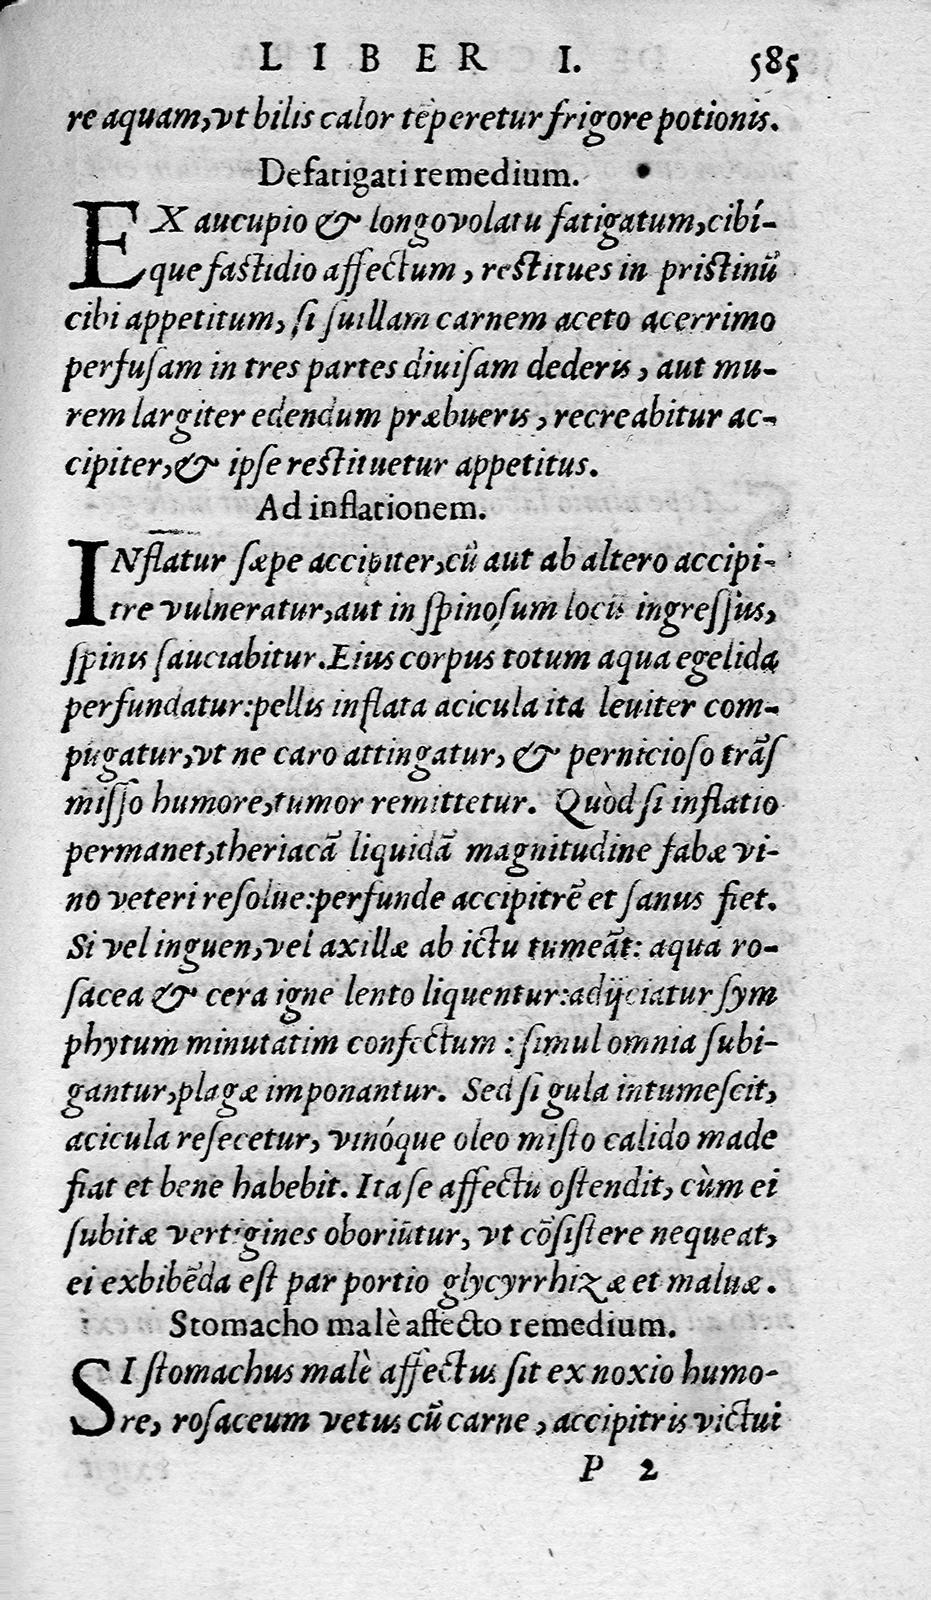 LIBER I. 585
re aquam, vt bilis calor tēperetur frigore potionis.
Defatigati remedium.
EX aucupio & longo volatu fatigatum, cibí-
que fastidio affectum, restitues in pristinū
cibi appetitum, si suillam carnem aceto acerrimo
perfusam in tres partes diuisam dederis, aut mu-
rem largiter edendum præbueris, recreabitur ac-
cipiter, & ipse restituetur appetitus.
Ad inflationem.
INflatur sæpe accipiter, cū aut ab altero accipi-
tre vulneratur, aut in spinosum locū ingressus,
spinis sauciabitur. Eius corpus totum aqua egelida
perfundatur: pellis inflata acicula ita leuiter com-
pūgatur, vt ne caro attingatur, & pernicioso trās
misso humore, tumor remittetur. Quòd si inflatio
permanet, theriacā liquidā magnitudine fabæ vi-
no veteri resolue: perfunde accipitrē et sanus fiet.
Si vel inguen, vel axillæ ab ictu tumeāt: aqua ro-
sacea & cera igne lento liquentur: adijciatur sym
phytum minutatim confectum: simul omnia subi-
gantur, plagæ imponantur. Sed si gula intumescit,
acicula resecetur, vinóque oleo misto calido made
fiat et bene habebit. Ita se affectū ostendit, cùm ei
subitæ vertigines oboriūtur, vt cōsistere nequeat,
ei exbibēda est par portio glycyrrhizæ et maluæ.
Stomacho malè affecto remedium.
SI stomachus malè affectus sit ex noxio humo-
re, rosaceum vetus cū carne, accipitris victui
P 2